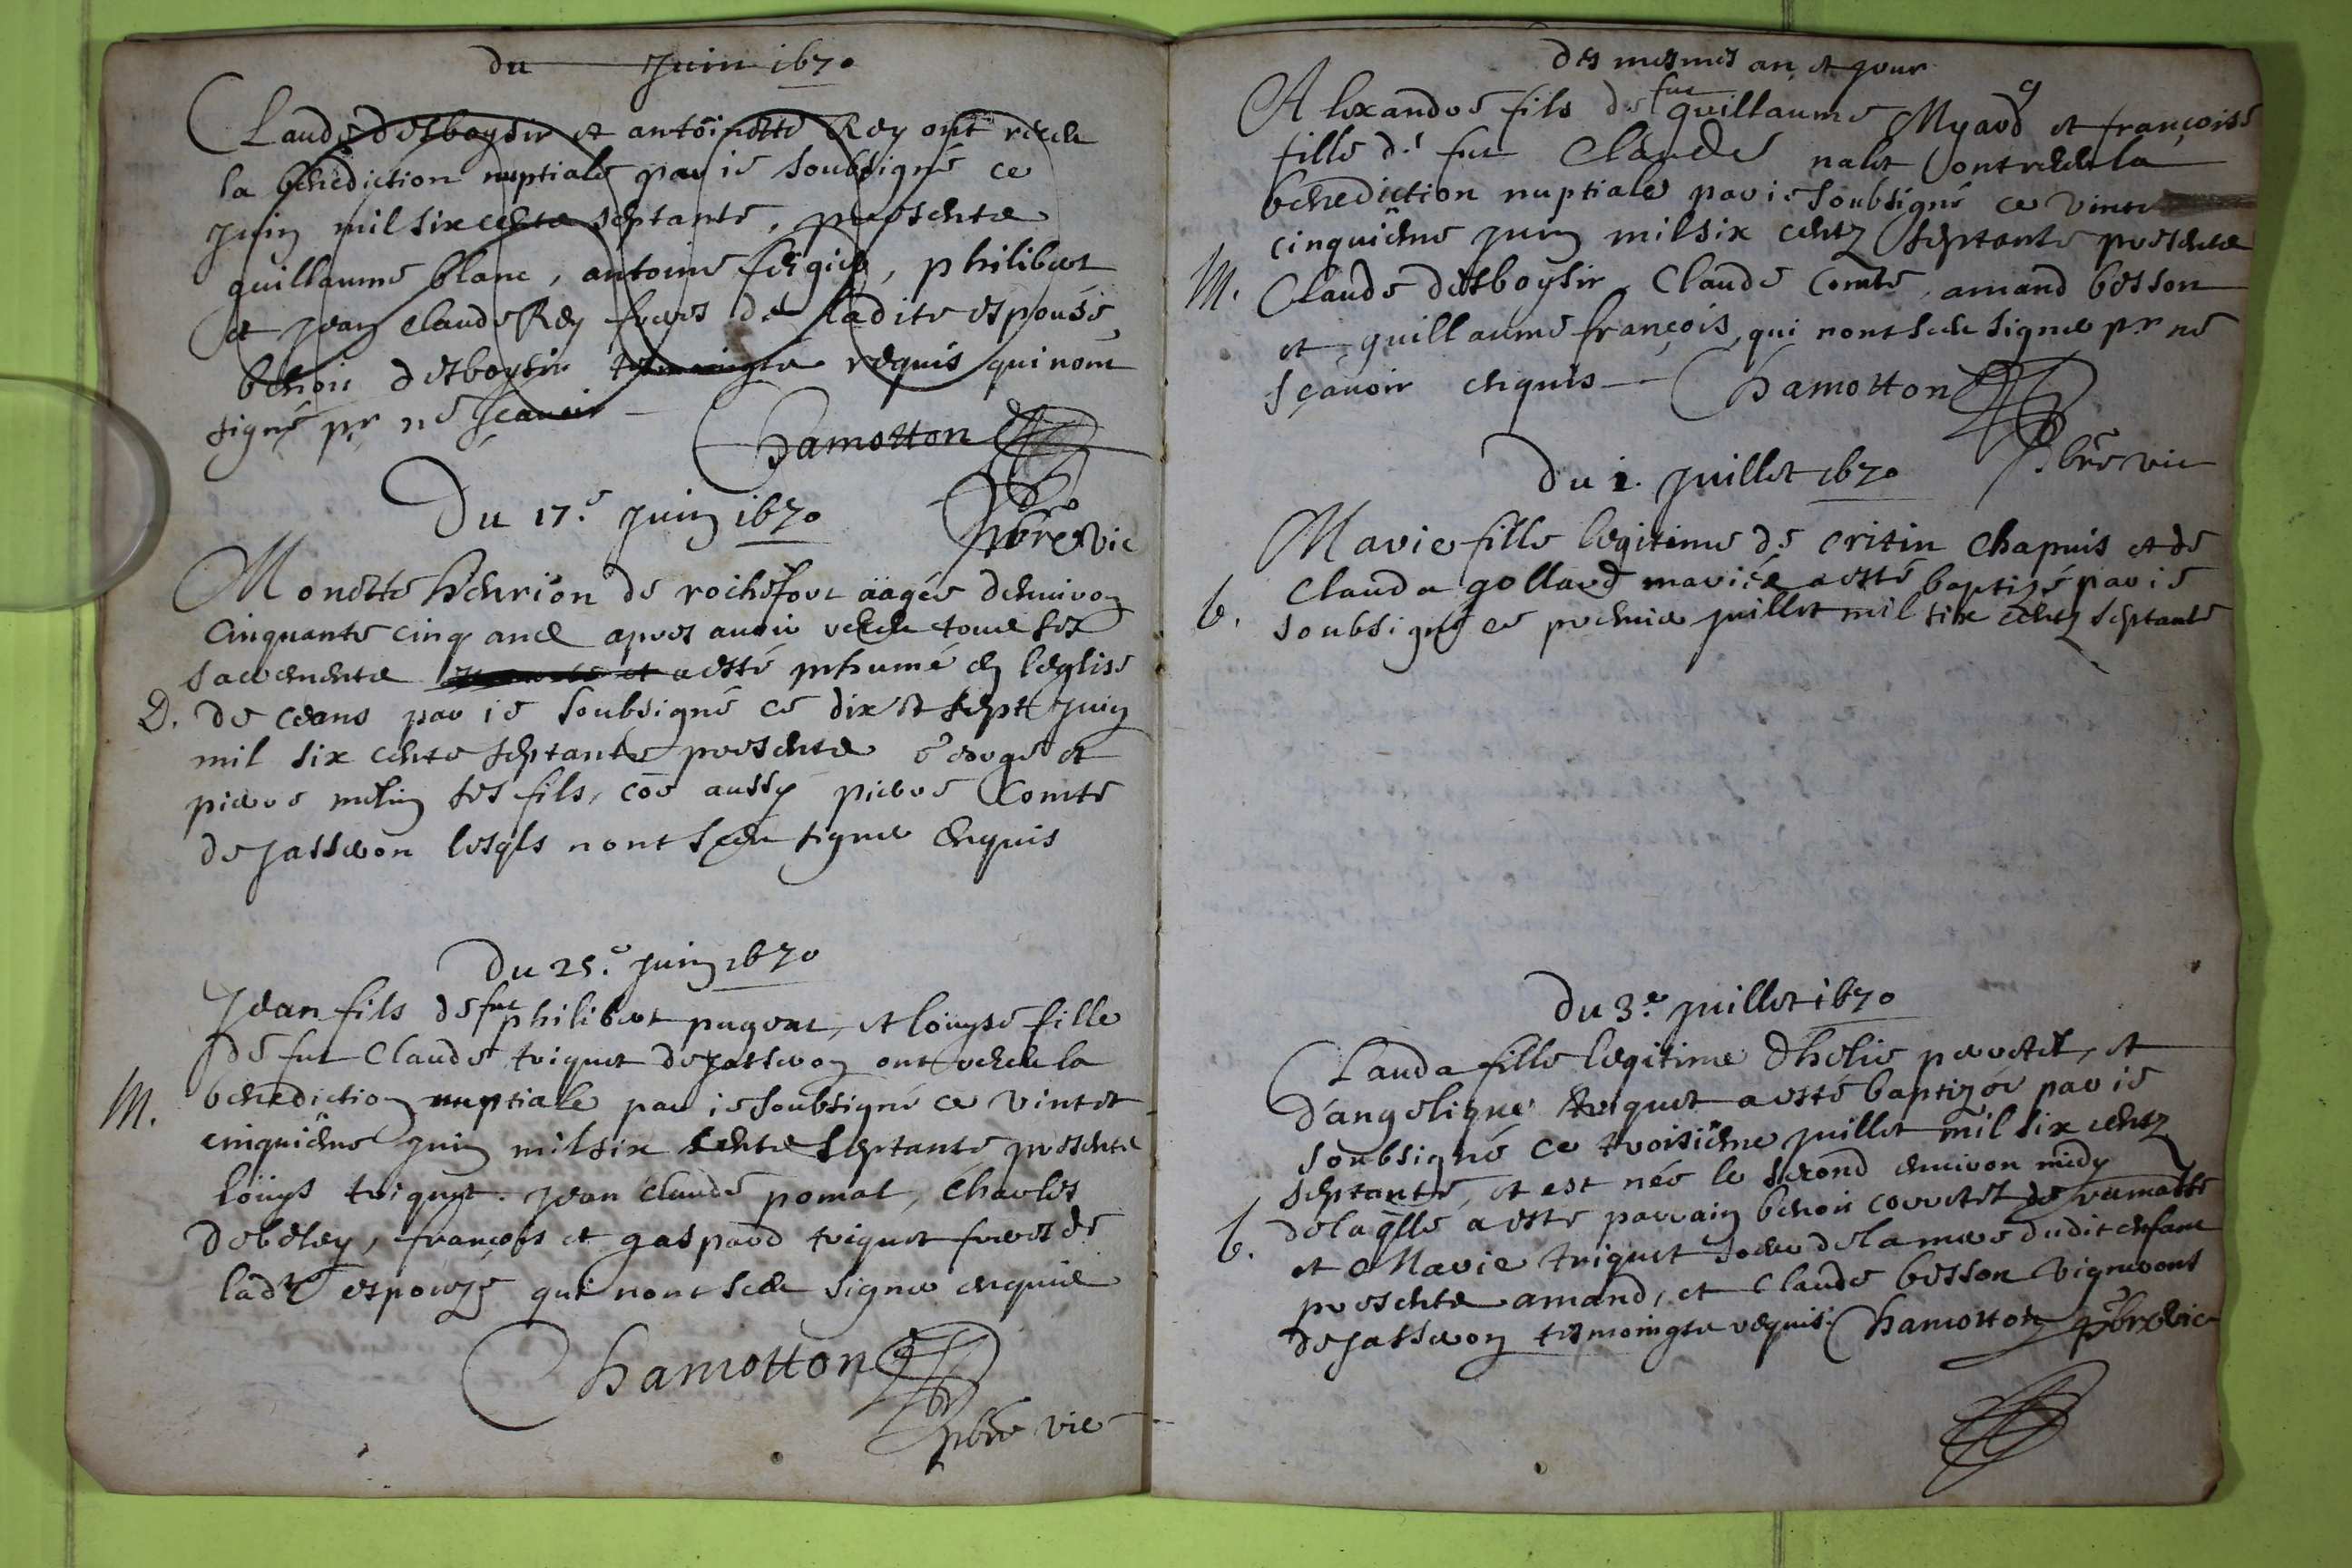 du juin 1670
Claude desboysir et antoinette Rey ont receu
la benediction nuptiale par ie soubsigné ce
juin mil six cents septante, presents
guillaume blanc, antoine , philibert
et jean claude Rey freres de ladite espouse
benoit desboysir tesmoingts requis qui nont
signé pr ne scavoir
Chamotton
pbre vic
Du 17.e juin 1670
Monette henrion de rochefort aagée denviron
cinquante cinq ans apres avoir receu tous ses
sacrements et a esté inhumé en leglise
D. de ceans par ie soubsigné ce dix et sept juin
mil six cents septante presents george et
pierre ses fils, coe aussy pierre Comte
de jasseron lesqls nont sceu signer enquis
Du 25.e juin 1670
Jean fils de fut philibert pugeat, et löuyse fille
de fut Claude triquet de jasseron ont receu la
M. benediction nuptiale par ie soubsigné ce vint et
cinquiëme juin mil six cents septante presents
löuys triquet. jean claude pomat, charles
debeley, françois et gaspard triquet freres de
ladte espouze qui nont sceu signer enquis
Chamotton
pbre vic
des mesmes an, et jour
Alexandre fils de fut guillaume Myard et françoise
fille de fut Claude nalet ont receu la
benediction nuptiale par ie soubsigné ce vint
cinquiëme juin mil six centz septante presents
M. Claude desboysir, Claude Comte, amand besson
et guillaume françois, qui nont sceu signer pr ne
sçavoir enquis Chamotton
pbre vic
Du 1. juillet 1670
Marie fille legitime de chapuis et de
Clauda gollard mariés a esté baptizé par ie
b. soubsigné ce premier juillet mil six centz septante
du 3.e juillet 1670
Clauda fille legitime dhelie perretet, et
d'angelique triquet a esté baptizée par ie
soubsigné ce troisiëme juillet mil six centz
septante, et est née le second environ midy
b. delaqlle a esté parrain benoit corretet de
et Marie triquet soeur de la mere dudit enfant
presents amand, et Claude besson vignerons
de jasseron tesmoingts requis Chamotton pbre vic